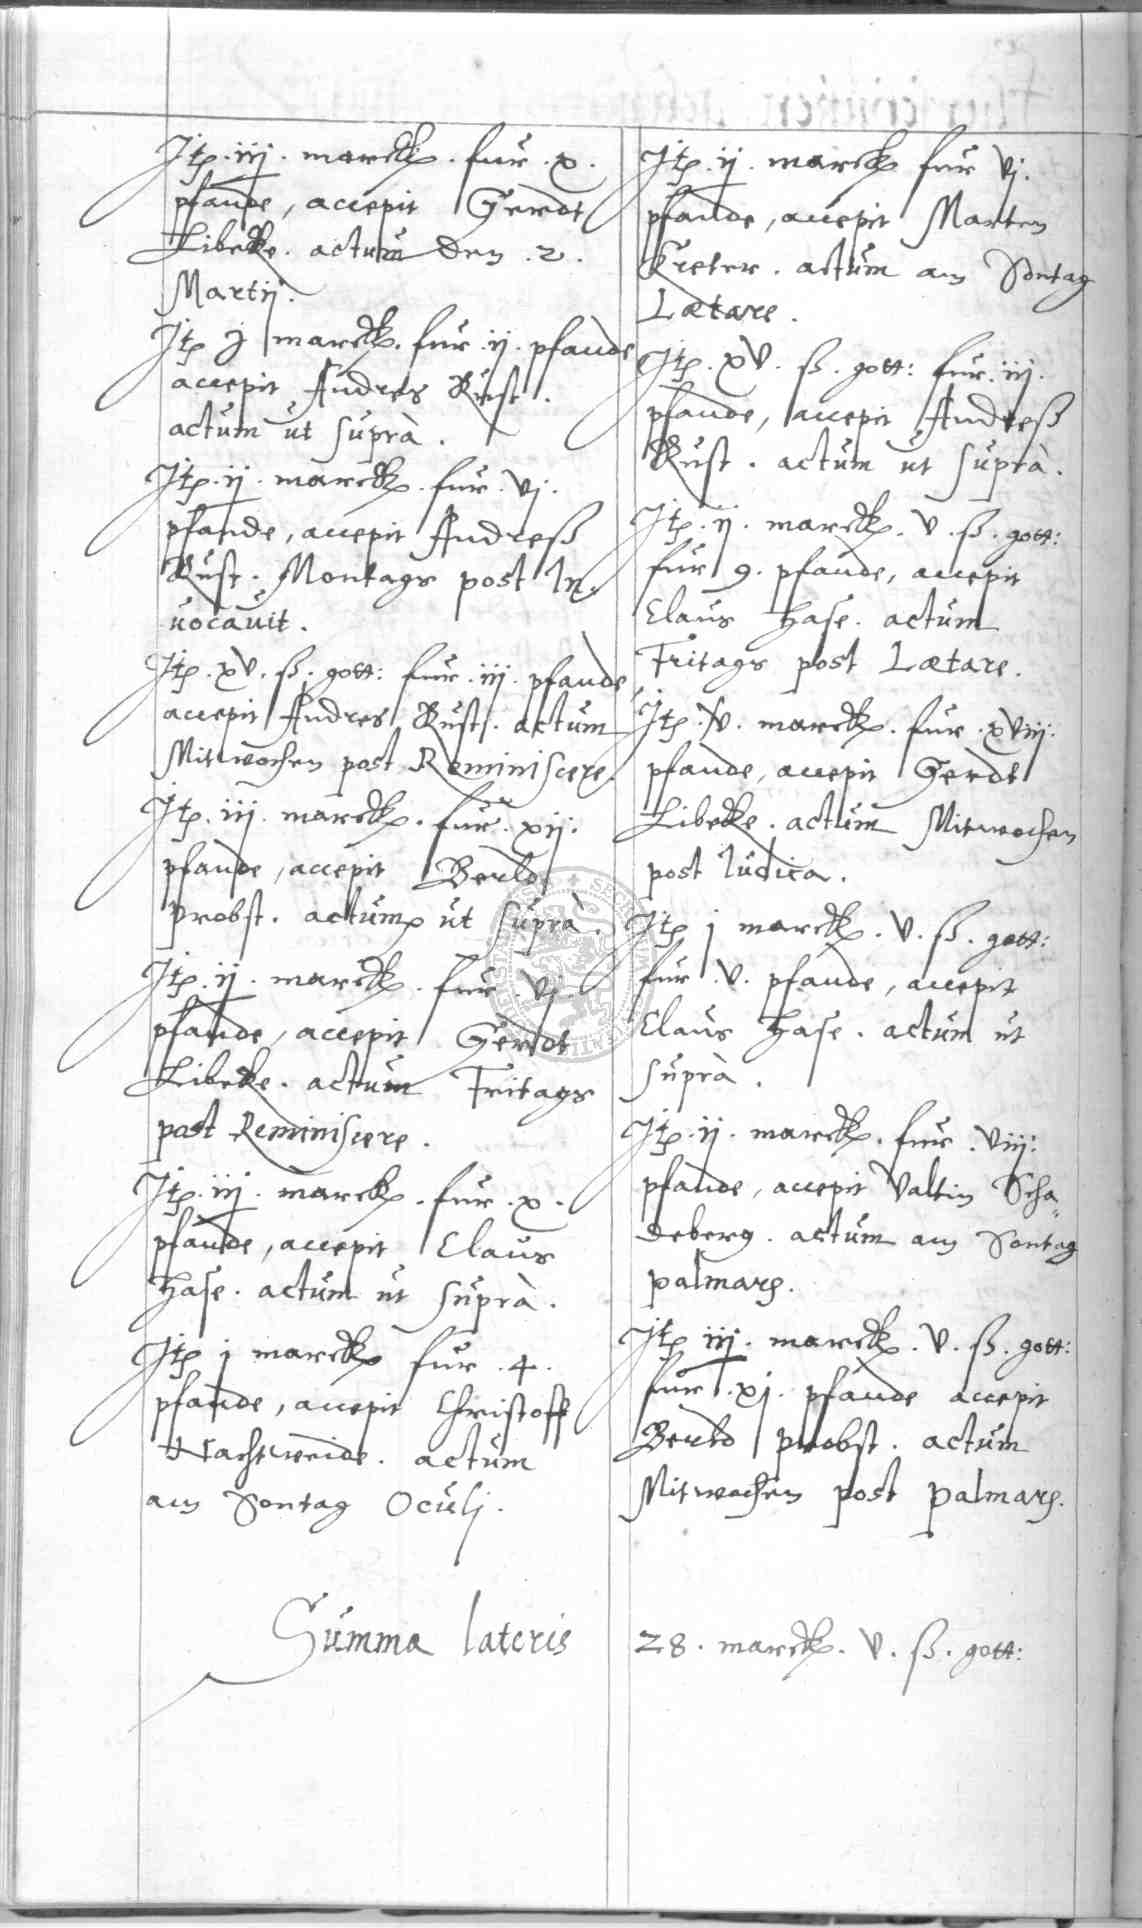 Jtem iij marck fur x
pfande, accepit Gerdt
Libeke. actum den 2.
Martij.
Jtem j marck. fur ij pfande
accepit Andres Rust.
actum ut suprà.
Jtem ij marck. fur vj.
pfande, accepit Andreß
Rust. Montags post In,
uocauit.
Jtem xv. ß. gott: fur iij pfande
accepit Andres Rust. actum
Mitwochen post Reminiscere.
Jtem iij marck. fur xij.
pfande, accepit Berld
Probst. actum ut suprà.
Jtem ij marck. fur vj
pfande, accepit Gerdt
Libeke. actum Fritags
post Reminiscere.
Jtem iij marck. fur x.
pfande, accepit Claus
Hase. actum ut suprà.
Jtem j marck fur 4.
pfande, accepit Christoff
Nachtweide. actum
am Sontag Oculj.
Jtem ij marck fur vj.
pfande, accepit Marten
Kreter. actum am Sontag
Lætare.
Jtem xv. ß. gott: fur iij.
pfande, accepit Andreß
Rust. actum ut suprà.
Jtem ij marck. v. ß. gott:
fur 9. pfande, accepit
Claus Hase. actum
Fritags post Lætare.
Jtem iv. marck. fur xviij.
pfande, accepit Gerdt
Libeke. actum Mitwochen
post Iudica.
Jtem j marck. v. ß. gott:
fur v. pfande, accepit
Claus Hase. actum ut
suprà.
Jtem ij marck. fur viij:
pfande, accepit Valtin Scha„
deberg. actum am Sontag
palmarum.
Jtem iij marck. v. ß. gott:
fur xj. pfande accepit
Berld probst. actum
Mitwochen post palmarum.
Summa lateris 28. marck. v. ß. gott: